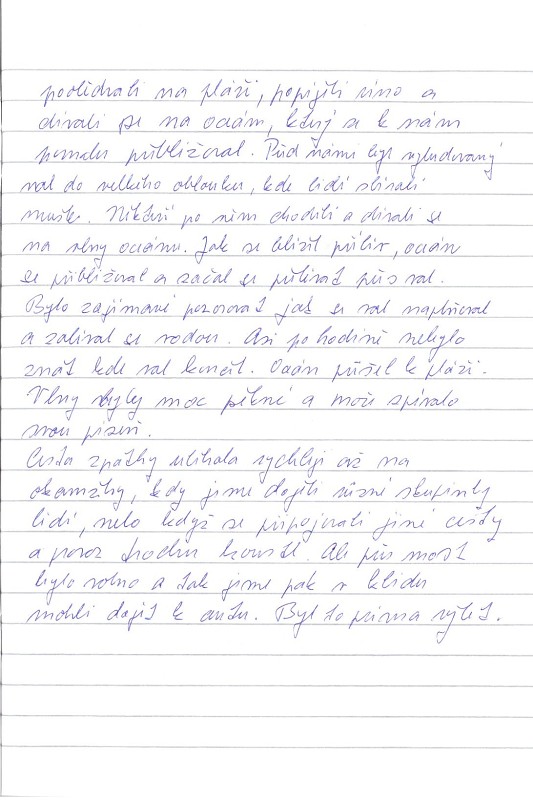 posedávali na pláži, popíjeli víno a
dívali se na oceán, který se k nám
pomalu přibližoval. Před námi byl vybudovaný
val do velkého oblouku, kde lidé sbírali
mušle. Někteří po něm chodili a dívali se
na vlny oceánu. Jak se blížil příliv, oceán
se přibližoval a začal se přelívat přes val.
Bylo zajímavé pozorovat jak se val naplňoval
a zalíval se vodou. Asi po hodině nebylo
znát kde val končil. Oceán přišel k pláži.
Vlny byly moc pěkné a moře zpívalo
svou píseň.
Cesta zpátky ubíhala rychleji až na
okamžiky, kdy jsme dojeli různé skupinky
lidí, nebo když se připojovali jiné cesty
a provoz trochu houstl. Ale přes most
bylo volno a tak jsme pak v klidu
mohli dojít k autu. Byl to prima výlet.